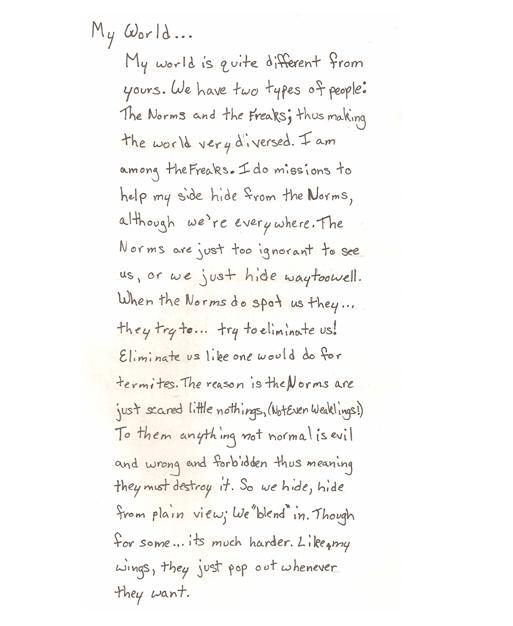 My World...
My world is quite different from
yours. We have two types of people:
The Norms and the Freaks; thus making
the world very diversed. I am
among the Freaks. I do missions to
help my side hide from the Norms,
although we're everywhere. The
Norms are just too ignorant to see
us, or we just hide way too well.
When the Norms do spot us they...
they try to... try to eliminate us!
Eliminate us like one would do for
termites. The reason is the Norms are
just scared little nothings, (Not Even Weaklings!)
To them anything not normal is evil
and wrong and forbidden thus meaning
they must destroy it. So we hide, hide
from plain view; We "blend" in. Though
for some... its much harder. Like, my
wings, they just pop out whenever
they want.